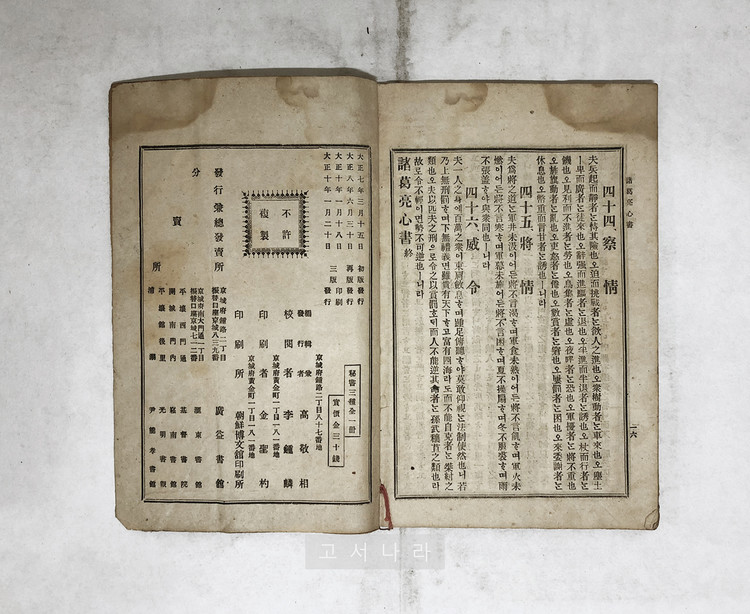 諸葛亮心書
四十四 察情
夫兵起而靜者는恃其險也오迫而挑戰者는欲人之進也오衆樹動者는車來也오塵土
卑而廣者는徒來也오辭强而進驅者는退也오半進而半退者는誘也오杖而行者는
饑也오見利而不進者는勞也오鳥集者는虛也오夜呼者는恐也오軍擾者는將不重也
오旌旗動者는亂也오吏怒者는倦也오數賞者는窘也오屢罰者는困也오來委謝者는欲
休息也오幣重而言甘者는誘也ㅣ니라
四十五 將情
夫爲將之道는軍井未汲이어든將不言渴하며軍食未熟이어든將不言飢하며軍火未
燃이어든將不言寒하며軍幕未施어든將不言困하며夏不操扇하며冬不服裘하며雨
不張盖하야與衆同也ㅣ니라
四十六 威令
夫一人之身에百萬之衆이束肩斂息하며踵足俯聽하야莫敢仰視는法制使然也니若
乃上無刑罰하며下無禮義면雖貴有天下하고富有四海라도而不能自免者는桀紂之
類也오夫以匹夫之刑으로令之以賞罰호되而人不能逆其命者는孫武穰苴之類也라
故로令不輕이며勢不可逆也ㅣ니라
諸葛亮心書 終
一六
大正七年三月十五日 初版發行
大正八年六月三十日 再版發行
大正十年一月十八日 三版印刷
大正十年一月二十日 三版發行
不許複製
秘書三種全一冊
實價金三十錢
京城府鍾路二丁目八十七番地
編輯兼發行者 高敬相
校閱者 李鍾麟
京城府黃金町一丁目一八一番地
印刷者 金重杓
京城府黃金町一丁目一八一番地
印刷所 朝鮮博文館印刷所
發行兼總發賣所
京城府鍾路二丁目
振替口座京城八三九番
廣益書館
分賣所
京城府南大門通一丁目
振替口座京城七一二番
滙東書館
平壤西門通 基督書院
開城南門內 廣南書館
平壤館後里 光明書觀
浦鹽 尹鶴孝書舘
고서나라